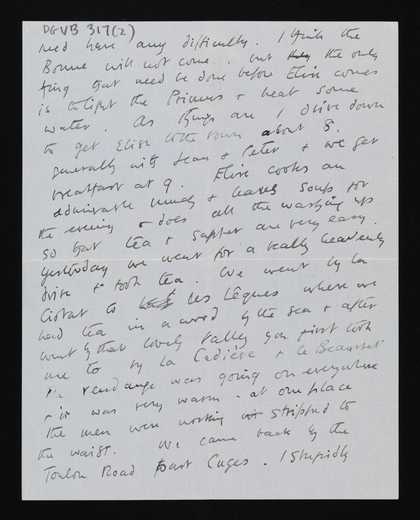 DGVB 317(2)
need have any difficulty. I think the
Bonne will not come. but the only
thing that need be done before Elise comes
is to light the Primus & heat some
water. As things are I drive down
to get Elise little town about 8.
generally with Jean & Peter & we get
breakfast at 9. Elise cooks an
admirable lunch & leaves soup for
the evening & does all the washing up
so that tea & supper are very easy.
yesterday we went for a really heavenly
drive & took tea. We went by La
Ciotat to Les Lèques where we
had tea in a wood by the sea & after
went by that lovely valley you first took
me to by La Cadière & Le Beausset
The vendange was going on everywhere
& it was very warm. at one place
the men were working stripped to
the waist. We came back by the
Toulon Road past Cuges. I stupidly